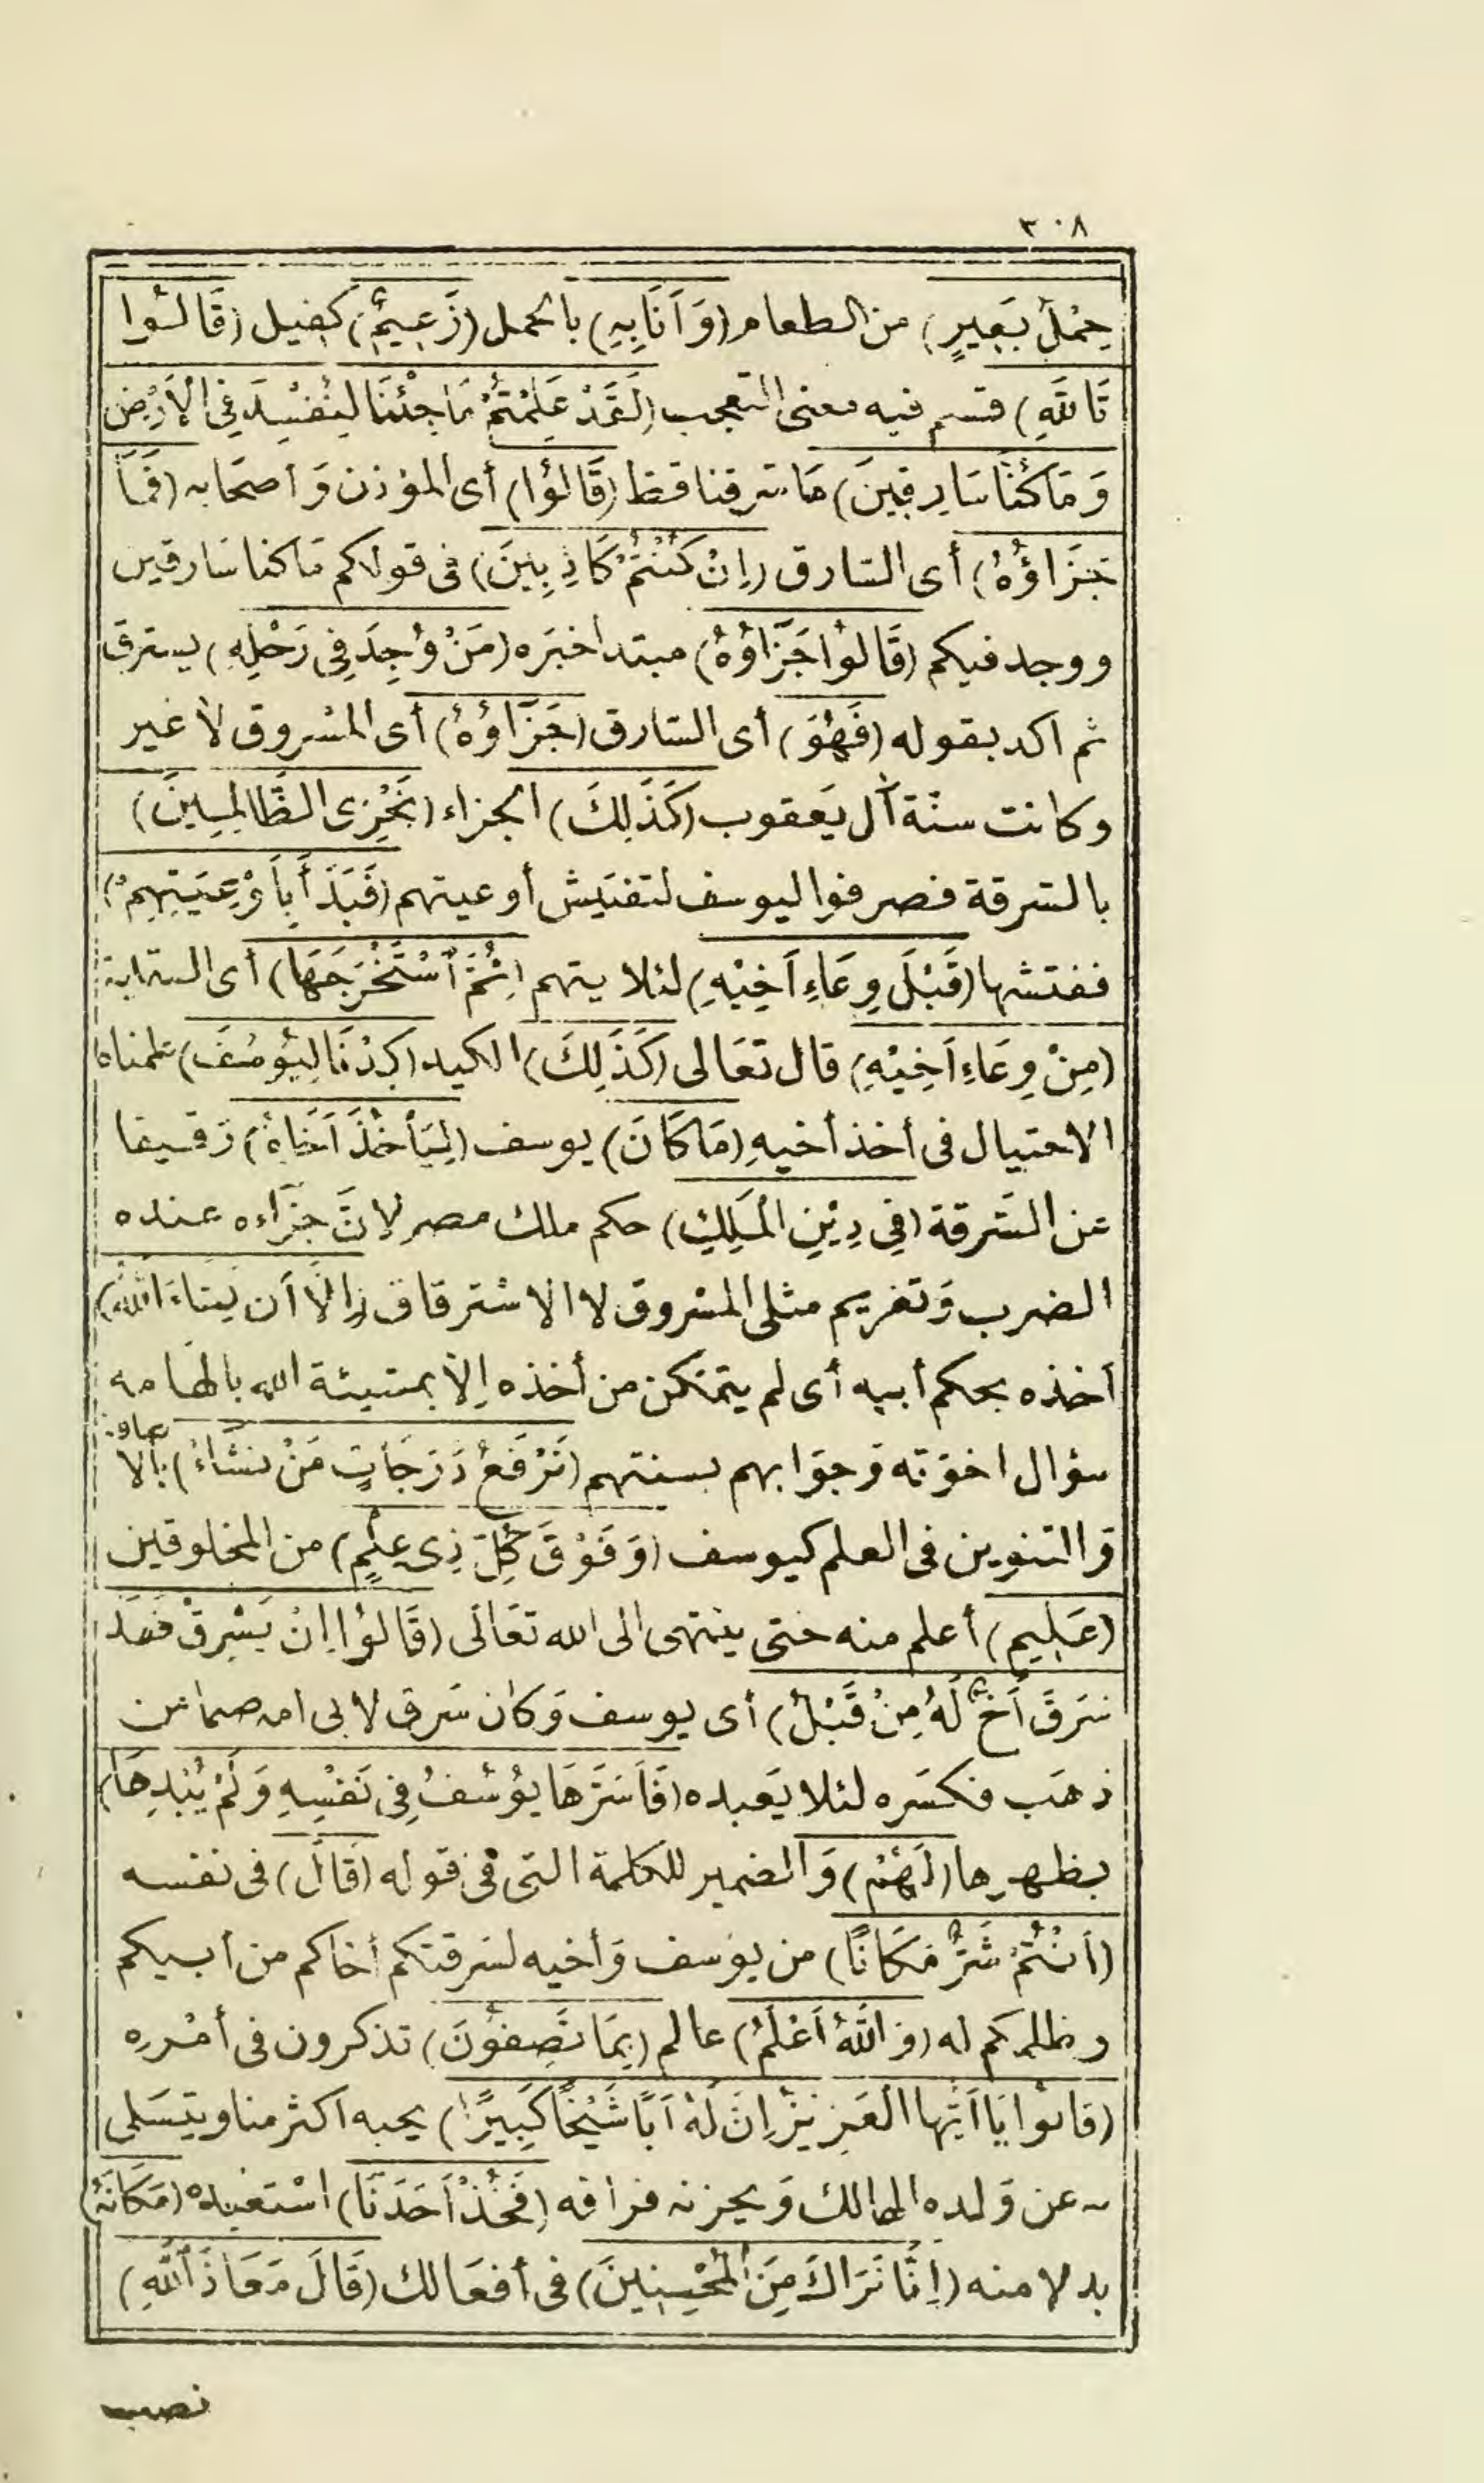 ٣٠٨
حِمْلُ بَعِيرٍ) من الطعام (وَأَنَا بِهِ) بالحمل (زَعِيمٌ) كفيل (قَالُوا
تَاللَّهِ) قسم فيه معنى التعجب (لَقَدْ عَلِمْتُمْ مَا جِئْنَا لِنُفْسِدَ فِي الْأَرْضِ
وَمَا كُنَّا سَارِقِينَ) مَا سرقنا قط (قَالُوا) أى المؤذن وَأصحَابه (فَمَا
جَزَاؤُهُ) أى السَّارق (إِنْ كُنْتُمْ كَاذِبِينَ) فى قولكم مَا كنا سَارقين
ووجد فيكم (قَالُوا جَزَاؤُهُ) مبتدأ خبَره (مَنْ وُجِدَ فِي رَحْلِهِ) يسترق
ثم اكد بقوله (فَهُوَ) أى السَّارق (جَزَاؤُهُ) أى المسْروق لا غير
وكانت سنّة آل يَعقوب (كَذَلِكَ) الجزاء (نَجْزِى الظَّالِمِينَ)
بالسَّرقة فصرفوا ليوسف لتفتيش أوعيتهم (فَبَدَأَ بِأَوْعِيَتِهِمْ)
ففتشها (قَبْلَ وِعَاءِ أَخِيْهِ) لئلا يتهم (ثُمَّ اسْتَخْرَجَهَا) أى السقاية
(مِنْ وِعَاءِ أَخِيْهِ) قال تعَالى (كَذَلِكَ) الكيد (كِدْنَا لِيُوسُفَ) علمناه
الاحتيال فى أخذ أخيهِ (مَا كَانَ) يوسف (لِيَأْخُذَ أَخَاهُ) رَقيقا
عن السَّرقة (فِي دِيْنِ الْمَلِكِ) حكم ملك مصر لانَّ جزَاءه عنده
الضرب وَتغريم مثلى المسْروق لا الاسْترقاق (إِلَّا أَن يَشَاءَ اللَّهُ)
أخذه بحكم أبيه أى لم يتمكن من أخذه إلا بمشيئة الله بالهامه
سؤال اخوَته وَجوَابهم بسنتهم (نَرْفَعُ دَرَجَاتٍ مَنْ نَشَاءُ) بالاضافة
وَالتنوين فى العلم كيوسف (وَفَوْقَ كُلِّ ذِى عِلْمٍ) من المخلوقين
(عَلِيم) أعلم منه حتى ينتهى الى الله تعَالَى (قَالُوا إِنْ يَسْرِقْ فَقَدْ
سَرَقَ أَخٌ لَهُ مِنْ قَبْلُ) أى يوسف وَكان سَرق لابى امه صنما من
ذهَب فكسَره لئلا يَعبده (فَأَسَرَّهَا يُوْسُفُ فِي نَفْسِهِ وَلَمْ يُبْدِهَا)
يظهرها (لَهُمْ) وَالضمير للكلمة التى فى قوله (قَالَ) فى نفسه
(أَنْتُمْ شَرٌّ مَكَانًا) من يوُسف وَأخيه لسَرقتكم أخاكم من أبيكم
وظلمكم له (وَاللَّهُ أَعْلَمُ) عالم (بِمَا تَصِفُونَ) تذكرون فى أمْرِه
(قَالوْا يَا أَيُّهَا الْعَزِيْزُ إِنَّ لَهُ أَبًا شَيْخًا كَبِيرًا) يحبه اكثر منا ويتسَلى
به عن وَلده الهالك وَيحزنه فراقه (فَخُذْ أَحَدَنَا) اسْتعبده (مَكَانَهُ)
بدلا منه (إِنَّا نَرَاكَ مِنَ الْمُحْسِنِينَ) فى أفعَالك (قَالَ مَعَاذَ اللَّهِ)
نصب